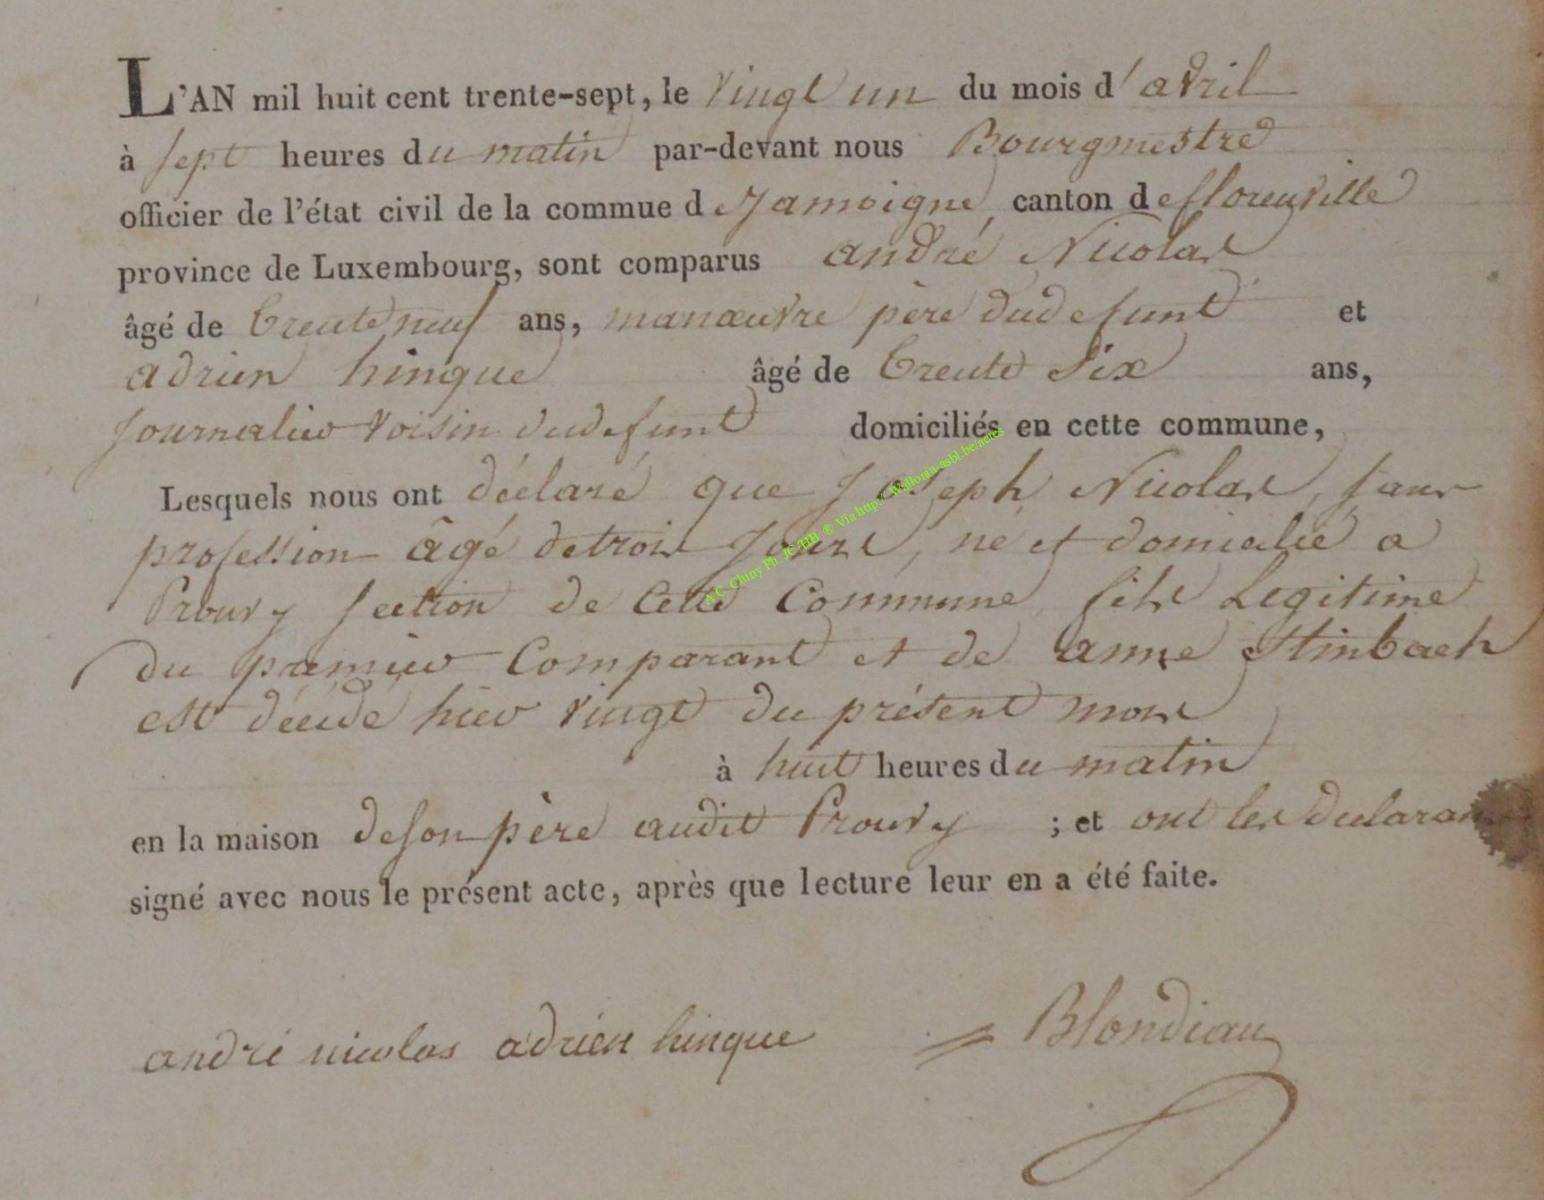 L'AN mil huit cent trente-sept, le vingt un du mois d'avril
à sept heures du matin par-devant nous Bourgmestre
officier de l'état civil de la commue de Jamoigne, canton de florenville
province de Luxembourg, sont comparus andré Nicolas
âgé de trente neuf ans, manœuvre père dudefunt et
adrien hinque âgé de trente Six ans,
Journalier voisin dudefunt domiciliés en cette commune,
Lesquels nous ont déclaré que Joseph Nicolas, sans
profession âgé detrois Jours, né et domicilié a
Prouvy section de cette Commune fils Legitime
du premier Comparant et de anne Stinbach
est décédé hier vingt du présent mois
à huit heures du matin
en la maison deson père audit Prouvy ; et ont les declaran
signé avec nous le présent acte, après que lecture leur en a été faite.
andré nicolas adrien hinque Blondiau